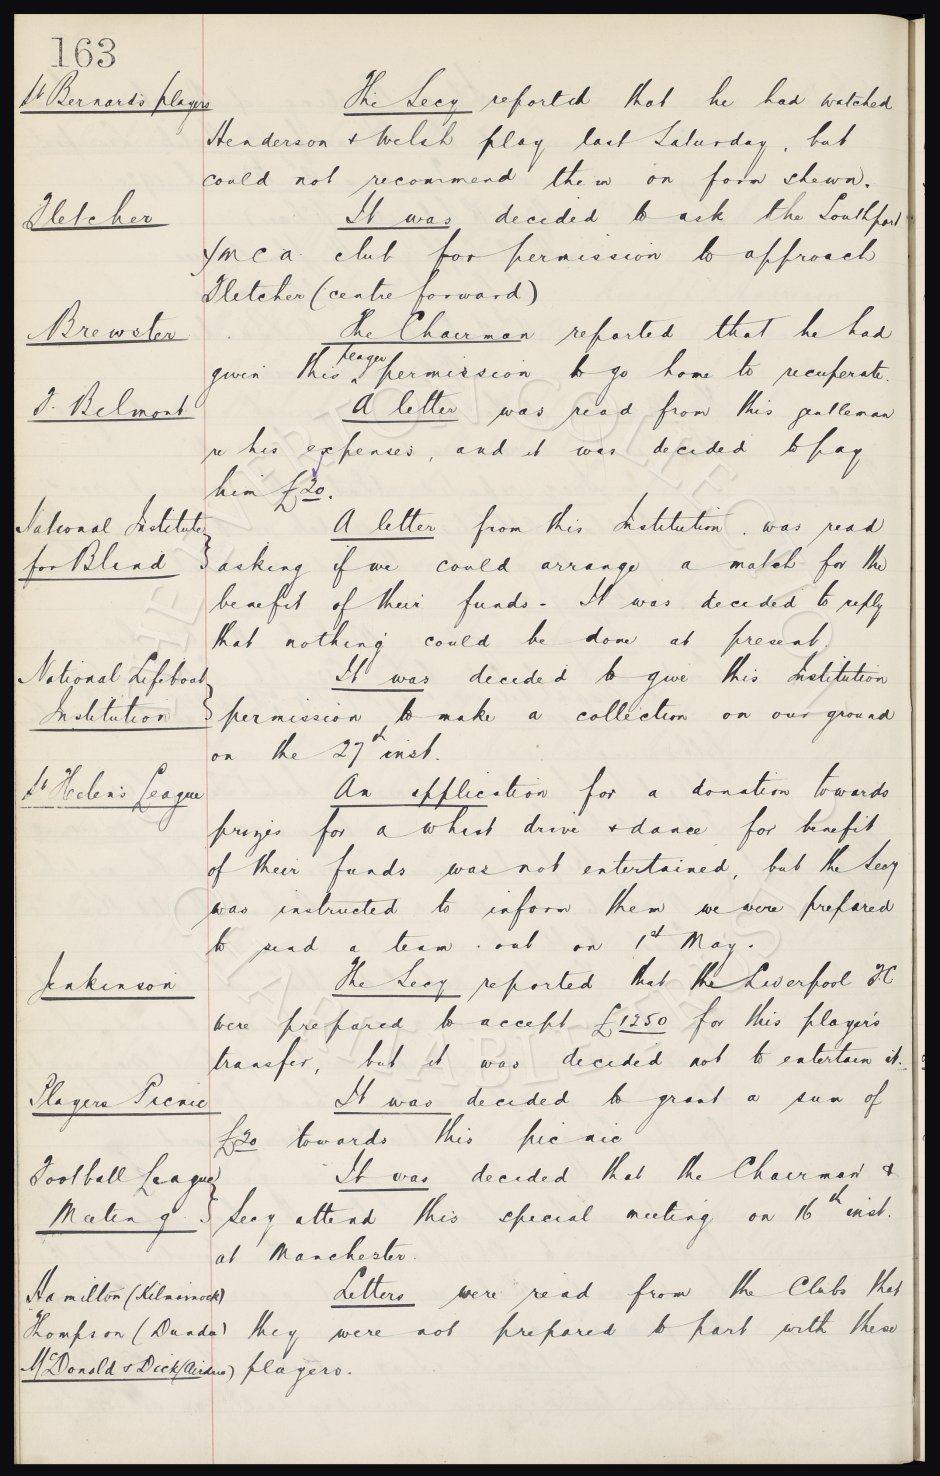 163
St Bernard's players The Secy reported that he had watched
Henderson & Welsh play last Saturday, but
could not recommend them on form shewn.
Fletcher It was decided to ask the Southport
YMCA club for permission to approach
Fletcher (centre forward)
Brewster The Chairman reported that he had
given this player permission to go home to recuperate.
T. Belmont A letter was read from this gentleman
re his expenses, and it was decided to pay
him £20.
National Institute A letter from this Institution was read
for Blind asking if we could arrange a match for the
benefit of their funds - It was decided to reply
that nothing could be done at present.
National Lifeboat It was decided to give this Institution
Institution permission to make a collection on our ground
on the 27th inst.
St Helen's League An application for a donation towards
prizes for a whist drive & dance for benefit
of their funds was not entertained, but the Secy
was instructed to inform them we were prepared
to send a team out on 1st May.
Jenkinson The Secy reported that the Liverpool FC
were prepared to accept £1250 for this player's
transfer, but it was decided not to entertain it.
Players Picnic It was decided to grant a sum of
£20 towards this picnic
Football League It was decided that the Chairman &
Meeting Secy attend this special meeting on 16th inst.
at Manchester.
Hamilton (Kilmarnock) Letters were read from the Clubs that
Thompson (Dundee) they were not prepared to part with these
McDonald & Dick (Airdrie) players.